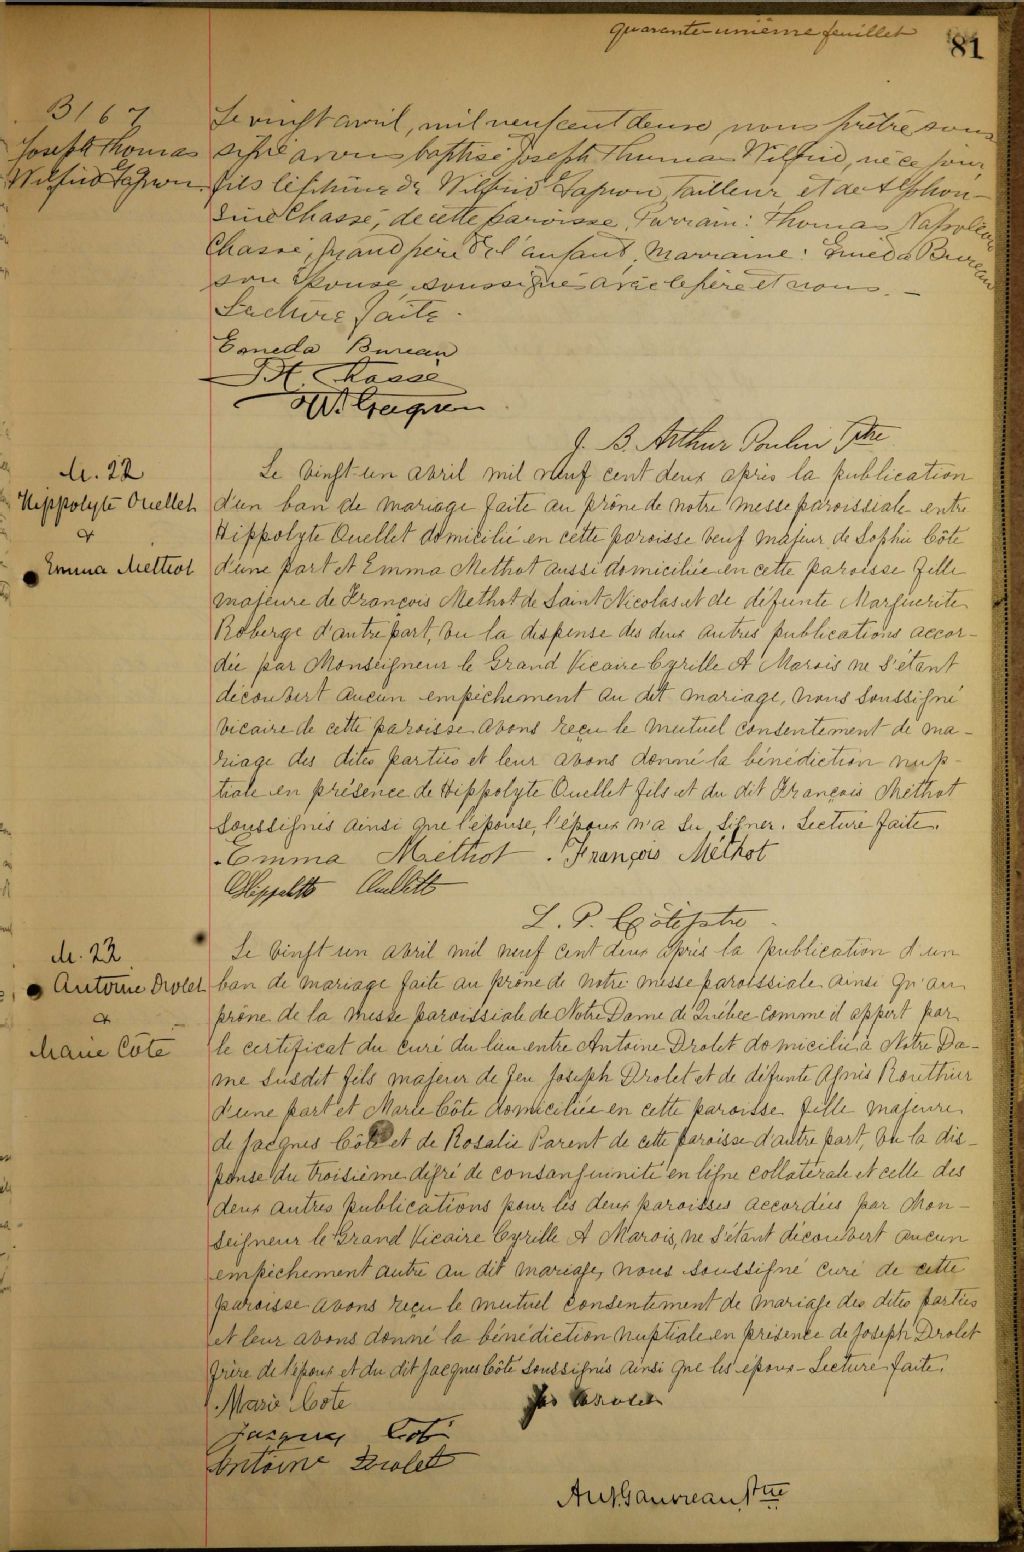 quarante-unième feuillet
81
B 167
Joseph Thomas
Wilfrid Gagnon
Le vingt avril, mil neuf cent deux, nous prêtre sous
signé avons baptisé Joseph Thomas Wilfrid, né ce jour,
fils légitime de Wilfrid Gagnon, tailleur, et de Alphon-
sine Chassé, de cette paroisse. Parrain: Thomas Napoléon
Chassé, grand père de l'enfant, Marraine: Eméda Bureau
son épouse, soussignés avec le père et nous. —
Lecture faite.
Emeda Bureau
T. N. Chassé
W. Gagnon
J. B. Arthur Poulin Ptre
M. 22
Hippolyte Ouellet
&
Emma Méthot
Le vingt-un avril mil neuf cent deux après la publication
d'un ban de mariage faite au prône de notre messe paroissiale entre
Hippolyte Ouellet domicilié en cette paroisse veuf majeur de Sophie Côté
d'une part et Emma Methot aussi domiciliée en cette paroisse fille
majeure de François Methot de Saint Nicolas et de défunte Marguerite
Roberge d'autre part, vu la dispense des deux autres publications accor-
dée par Monseigneur le Grand Vicaire Cyrille A Marois ne s'étant
découvert aucun empêchement au dit mariage, nous soussigné
vicaire de cette paroisse avons reçu le mutuel consentement de ma-
riage des dites parties et leur avons donné la bénédiction nup-
tiale en présence de Hippolyte Ouellet fils et du dit François Méthot
soussignés ainsi que l'épouse, l'époux n'a su signer. Lecture faite.
Emma Méthot . François Méthot
Hippolite Ouellette
L. P. Côté ptre
M. 23
Antoine Drolet
&
Marie Côté
Le vingt un avril mil neuf cent deux après la publication d'un
ban de mariage faite au prône de notre messe paroissiale ainsi qu'au
prône de la messe paroissiale de Notre Dame de Québec comme il appert par
le certificat du curé du lieu entre Antoine Drolet domicilié à Notre Da-
me susdit fils majeur de feu Joseph Drolet et de défunte Agnès Routhier
d'une part et Marie Côté domiciliée en cette paroisse fille majeure
de Jacques Côté et de Rosalie Parent de cette paroisse d'autre part, vu la dis-
pense du troisième degré de consanguinité en ligne collatérale et celle des
deux autres publications pour les deux paroisses accordées par Mon-
seigneur le Grand Vicaire Cyrille A Marois, ne s'étant découvert aucun
empêchement autre au dit mariage, nous soussigné curé de cette
paroisse avons reçu le mutuel consentement de mariage des dites parties
et leur avons donné la bénédiction nuptiale en présence de Joseph Drolet
frère de l'époux et du dit Jacques Côté soussignés ainsi que les époux - Lecture faite.
Marie Cote
Jos Drolet
Jacques Coté
Antoine Drolet
Ant. Gauvreau, Ptre